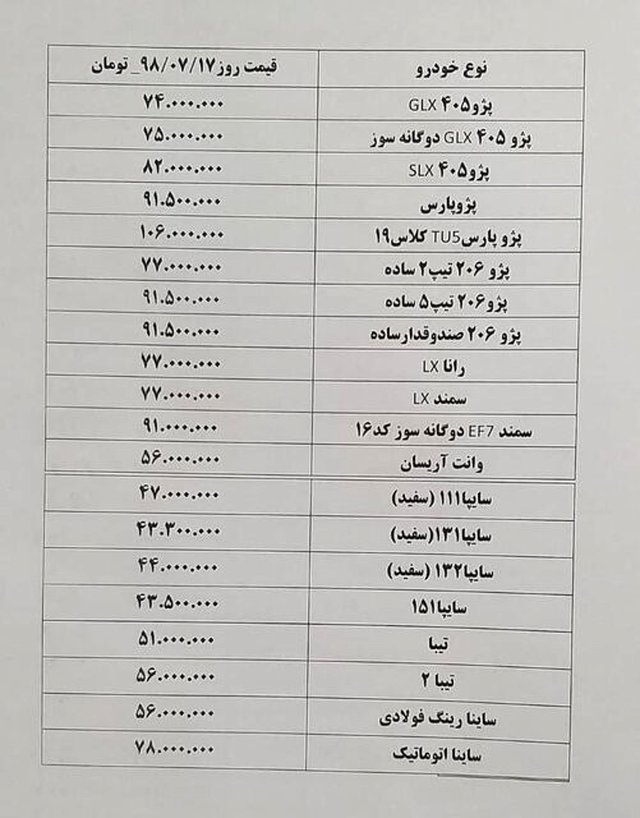 نوع خودرو	قیمت روز۹۸/۰۷/۱۷_ تومان
پژو۴۰۵ GLX	۷۴.۰۰۰.۰۰۰
پژو ۴۰۵ GLX دوگانه سوز	۷۵.۰۰۰.۰۰۰
پژو۴۰۵ SLX	۸۲.۰۰۰.۰۰۰
پژوپارس	۹۱.۵۰۰.۰۰۰
پژو پارسTU5 کلاس۱۹	۱۰۶.۰۰۰.۰۰۰
پژو ۲۰۶ تیپ۲ ساده	۷۷.۰۰۰.۰۰۰
پژو۲۰۶ تیپ۵ ساده	۹۱.۵۰۰.۰۰۰
پژو ۲۰۶ صندوقدارساده	۹۱.۵۰۰.۰۰۰
رانا LX	۷۷.۰۰۰.۰۰۰
سمند LX	۷۷.۰۰۰.۰۰۰
سمند EF7 دوگانه سوز کد۱۶	۹۱.۰۰۰.۰۰۰
وانت آریسان	۵۶.۰۰۰.۰۰۰
سایپا۱۱۱ (سفید)	۴۷.۰۰۰.۰۰۰
سایپا۱۳۱(سفید)	۴۳.۳۰۰.۰۰۰
سایپا۱۳۲ (سفید)	۴۴.۰۰۰.۰۰۰
سایپا۱۵۱	۴۳.۵۰۰.۰۰۰
تیبا	۵۱.۰۰۰.۰۰۰
تیبا ۲	۵۶.۰۰۰.۰۰۰
ساینا رینگ فولادی	۵۶.۰۰۰.۰۰۰
ساینا اتوماتیک	۷۸.۰۰۰.۰۰۰